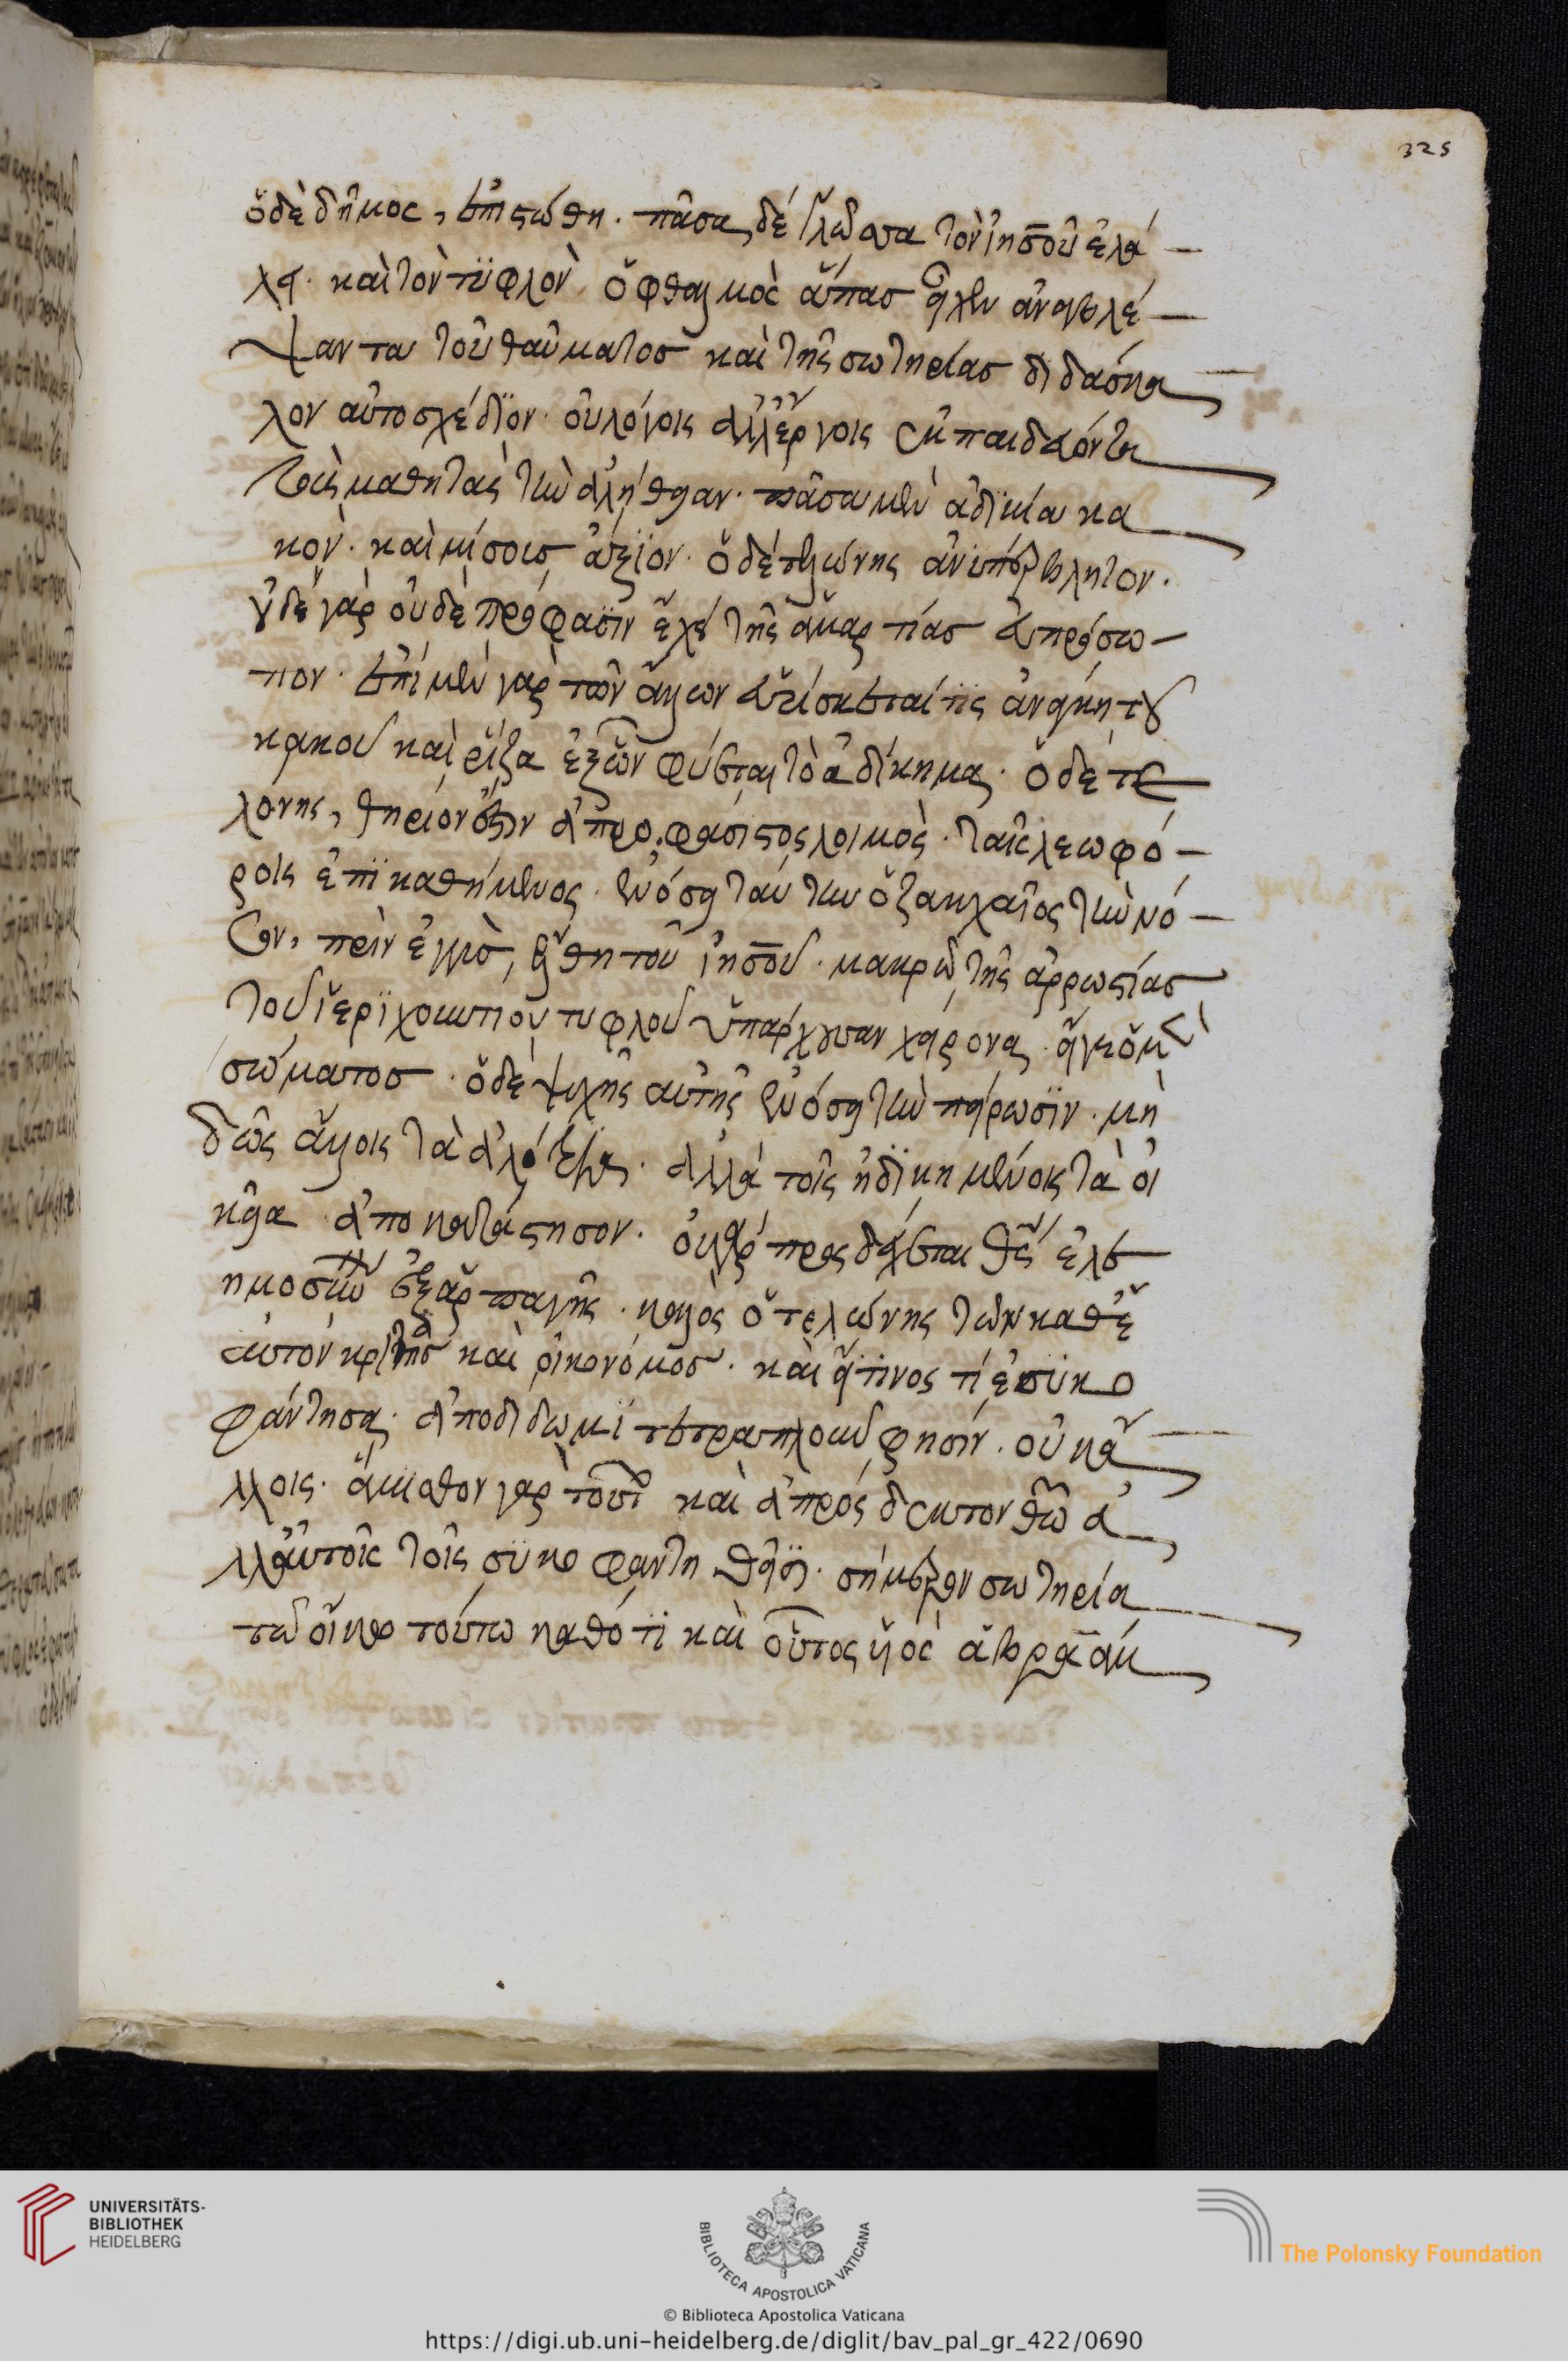 325
ὁ δὲ δῆμος, ἐπιστώθη. πᾶσα δὲ γλῶσσα τὸν ἰησοῦ ἐλά
λει. καὶ τὸν τυφλὸν ὀφθαλμὸς ἅπας εἶχεν ἀναβλέ
ψαντα τοῦ θαύματος καὶ τῆς σωτηρίας διδάσκα
λον αὐτοσχέδιον. οὐ λόγοις ἀλλ' ἔργοις ἐκπαιδεύοντα
τοὺς μαθητὰς τὴν ἀλήθειαν. πᾶσα μὲν ἀδικία κα
κὸν. καὶ μίσους ἄξιον. ὁ δὲ τελώνης ἀνυπέρβλητον.
οὐδὲ γὰρ οὐδὲ πρόφασιν ἔχει τῆς ἁμαρτίας εὐπρόσω
πον. ἐπὶ μὲν γὰρ τῶν ἄλλων εὑρίσκεταί τις ἀνάγκη τοῦ
κακοῦ καὶ ῥίζα ἐξ ὧν φύεται τὸ ἀδίκημα. ὁ δὲ τε
λόνης, θηρίον ἐστὶν ἀπροφάσιστος λοιμὸς. ταῖς λεωφό
ροις ἐπικαθήμενος. ἐνόσει ταύτην ὁ ζακχαῖος τὴν νό
σον, πρὶν ἐγγὺς ἔλθη τοῦ ἰησοῦ. μακρῶ τῆς ἀρρωστίας
τοῦ ἱεριχουντίου τυφλοῦ ὑπάρχουσαν χείρονα. ἡ γε ὄμ
σώματος. ὁ δὲ ψυχῆς αὐτῆς ἐνόσει τὴν πήρωσιν. μὴ
δῶς ἄλλοις τὰ ἀλλότρια. ἀλλὰ τοῖς ἠδικημένοις τὰ οἰ
κεῖα ἀποκατάστησον. οὐ γὰρ προσδέχεται θεὸς ἐλε
ημοσύνην ἐξ ἁρπαγῆς. καλὸς ὁ τελώνης τῶν καθ' ἑ
αυτὸν κριτὴς καὶ οἰκονόμος. καὶ εἴ τινος τί ἐσυκο
φάντησα. ἀποδίδωμι τετραπλοῦν φησίν. οὐκ ἄ
λλοις. ἄμισθον γὰρ τοῦτο καὶ ἀπρόσδεκτον θεῷ ἀ
λλ' αὐτοῖς τοῖς συκοφαντηθεῖσι. σήμερον σωτηρία
τῶ οἴκω τούτω καθότι καὶ οὗτος υἱὸς ἀβραάμ
UNIVERSITÄTS-
BIBLIOTHEK
HEIDELBERG
BIBLIOTECA APOSTOLICA VATICANA
The Polonsky Foundation
© Biblioteca Apostolica Vaticana
https://digi.ub.uni-heidelberg.de/diglit/bav_pal_gr_422/0690